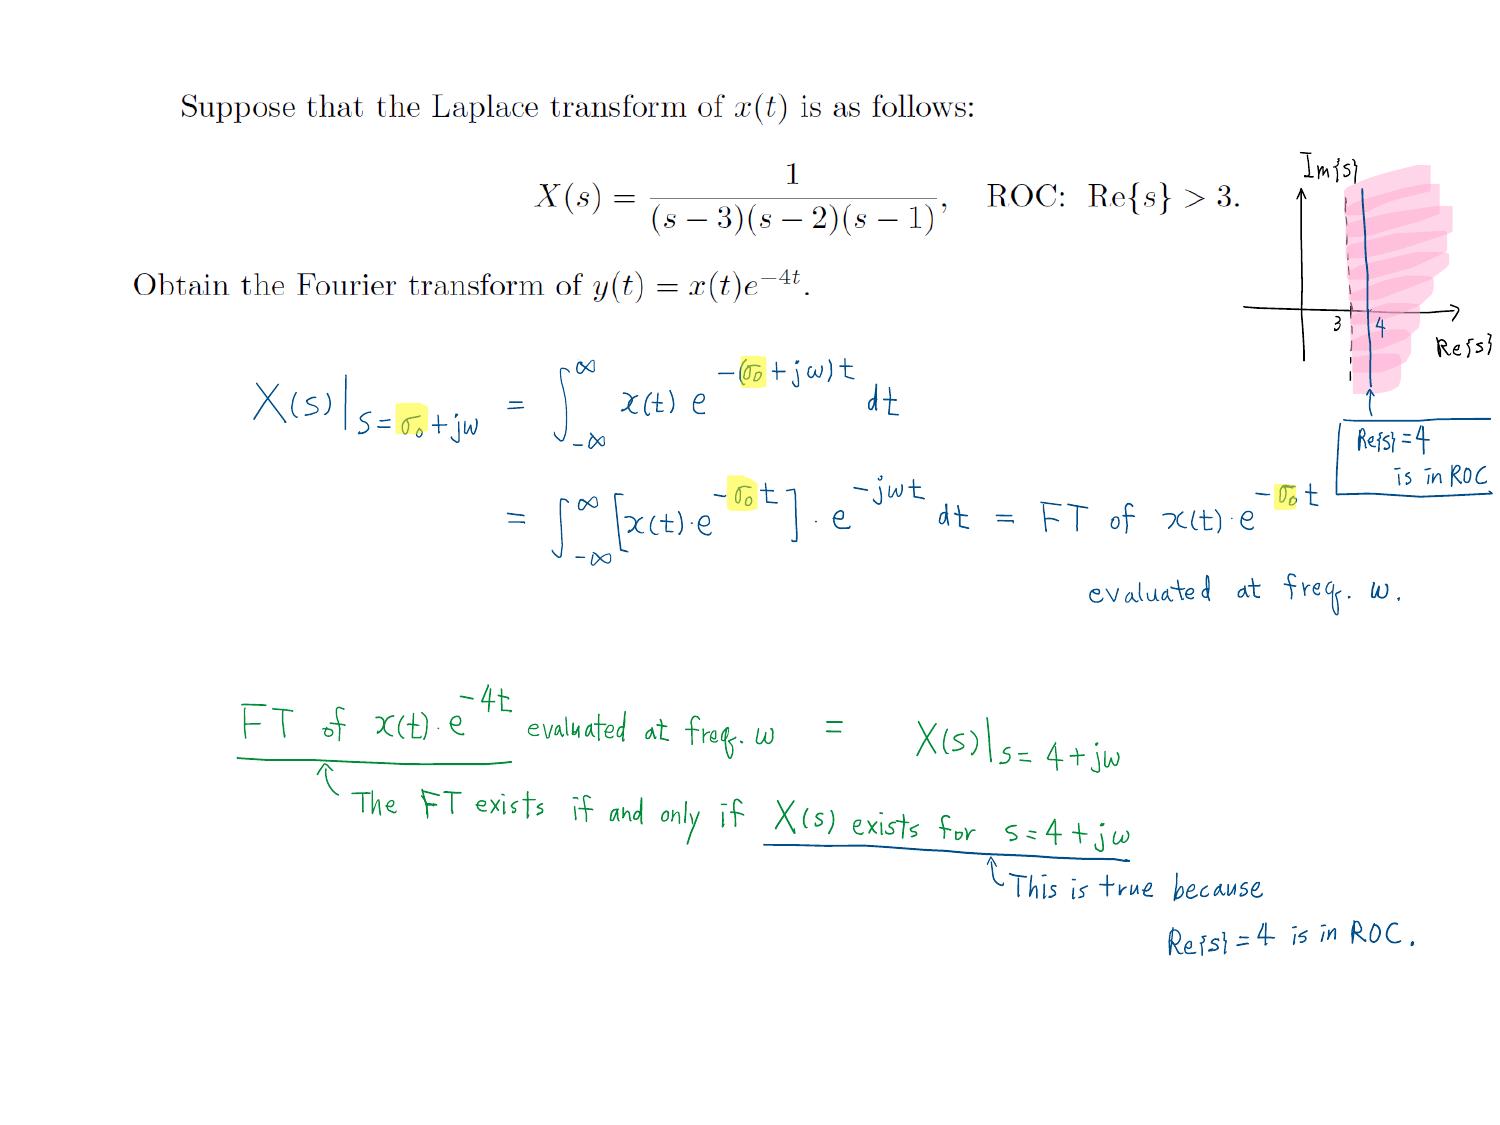 Suppose that the Laplace transform of x(t) is as follows:
X(s) = 1 / ((s − 3)(s − 2)(s − 1)), ROC: Re{s} > 3.
Im{s}
3 4
Re{s}
Obtain the Fourier transform of y(t) = x(t)e^{−4t}.
X(s)|_{s=σ₀+jω} = ∫_{-∞}^{∞} x(t) e^{-(σ₀+jω)t} dt
Re{s}=4
is in ROC
= ∫_{-∞}^{∞} [x(t)·e^{-σ₀t}] · e^{-jωt} dt = FT of x(t)·e^{-σ₀t}
evaluated at freq. ω.
FT of x(t)·e^{-4t} evaluated at freq. ω = X(s)|_{s=4+jω}
The FT exists if and only if X(s) exists for s=4+jω
This is true because
Re{s}=4 is in ROC.